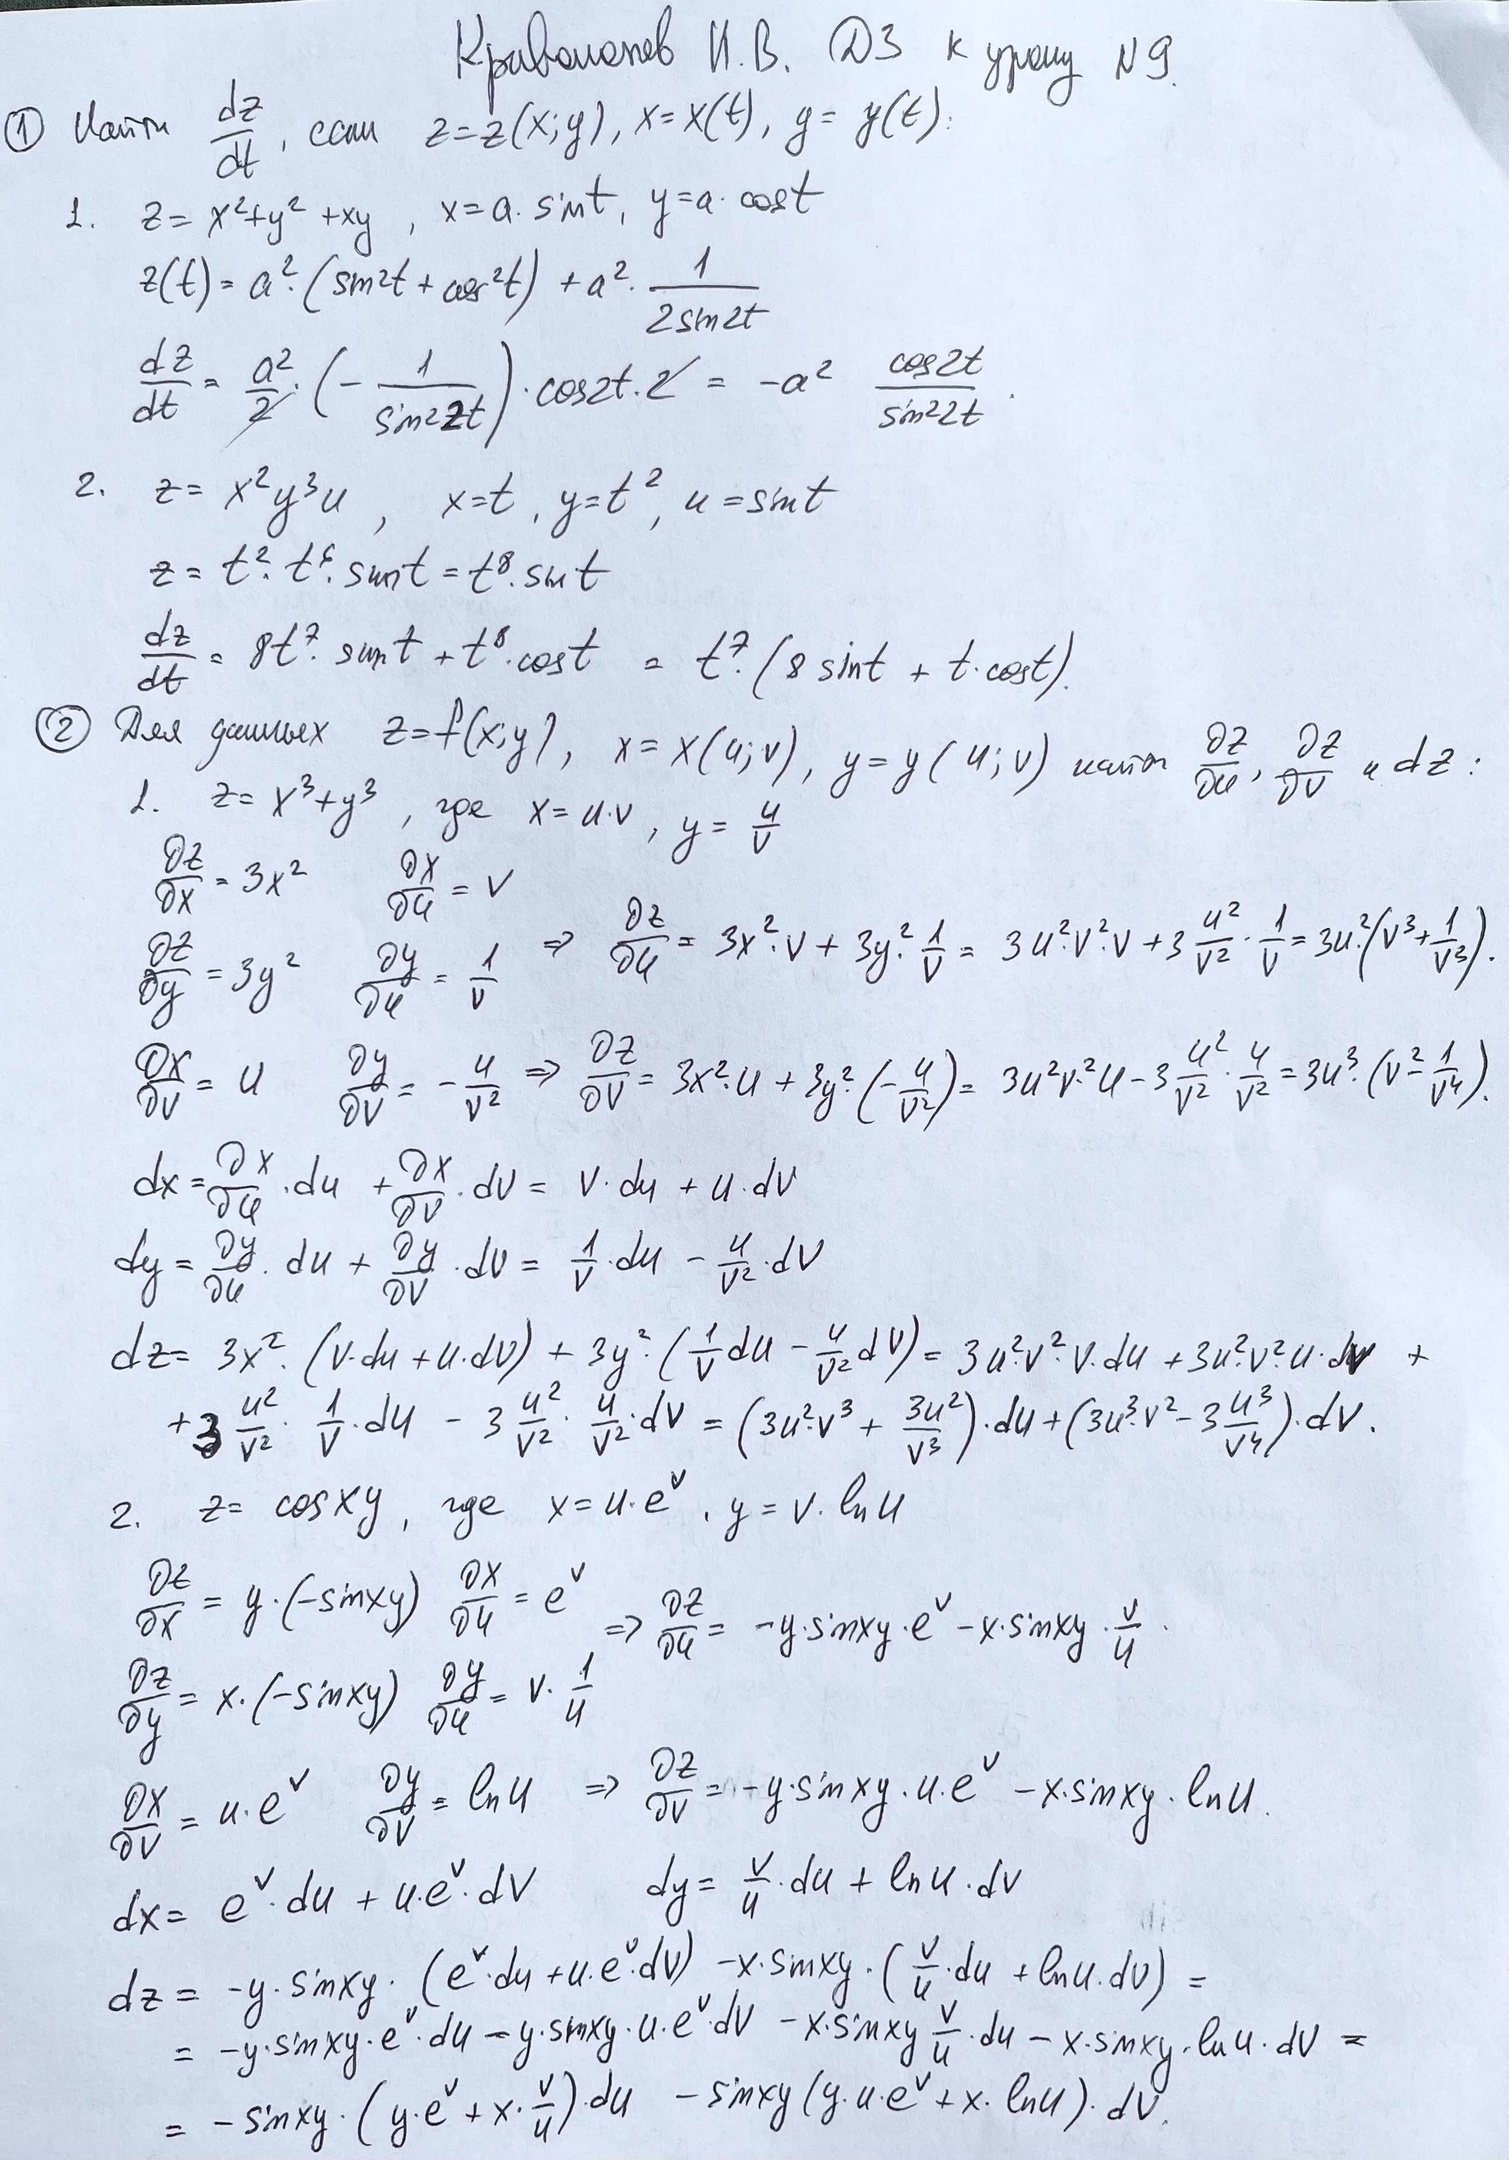 Кривопалов И.В. ДЗ к уроку N9.
① Найти dz/dt, если z=z(x;y), x=x(t), y=y(t):
1. z=x²+y²+xy, x=a·sint, y=a·cost
z(t)=a²·(sin²t+cos²t)+a²·1/(2sin2t)
dz/dt=a²/2·(-1/(sin²2t))·cos2t·2=-a² cos2t/sin²2t.
2. z=x²y³u, x=t, y=t², u=sint
z=t²·t⁶·sint=t⁸·sint
dz/dt=8t⁷·sint+t⁸·cost=t⁷·(8sint+t·cost).
② Для данных z=f(x;y), x=x(u;v), y=y(u;v) найти ∂z/∂u, ∂z/∂v и dz:
1. z=x³+y³, где x=u·v, y=u/v
∂z/∂x=3x² ∂x/∂u=v
∂z/∂y=3y² ∂y/∂u=1/v ⇒ ∂z/∂u=3x²·v+3y²·1/v=3u²·v²·v+3u²/v²·1/v=3u²·(v³+1/v³).
∂x/∂v=u ∂y/∂v=-u/v² ⇒ ∂z/∂v=3x²·u+3y²·(-u/v²)=3u²v²·u-3u²/v²·u/v²=3u³·(v²-1/v⁴).
dx=∂x/∂u·du+∂x/∂v·dv=v·du+u·dv
dy=∂y/∂u·du+∂y/∂v·dv=1/v·du-u/v²·dv
dz=3x²·(v·du+u·dv)+3y²·(1/v du-u/v² dv)=3u²·v²·v·du+3u²·v²·u·dv+
+3u²/v²·1/v·du-3u²/v²·u/v²·dv=(3u²·v³+3u²/v³)·du+(3u³·v²-3u³/v⁴)·dv.
2. z=cosxy, где x=u·eᵛ, y=v·lnu
∂z/∂x=y·(-sinxy) ∂x/∂u=eᵛ ⇒ ∂z/∂u=-y·sinxy·eᵛ-x·sinxy·v/u.
∂z/∂y=x·(-sinxy) ∂y/∂u=v·1/u
∂x/∂v=u·eᵛ ∂y/∂v=lnu ⇒ ∂z/∂v=-y·sinxy·u·eᵛ-x·sinxy·lnu.
dx=eᵛ·du+u·eᵛ·dv dy=v/u·du+lnu·dv
dz=-y·sinxy·(eᵛ·du+u·eᵛ·dv)-x·sinxy·(v/u·du+lnu·dv)=
=-y·sinxy·eᵛ·du-y·sinxy·u·eᵛ·dv-x·sinxy v/u·du-x·sinxy·lnu·dv=
=-sinxy·(y·eᵛ+x·v/u)·du-sinxy(y·u·eᵛ+x·lnu)·dv.